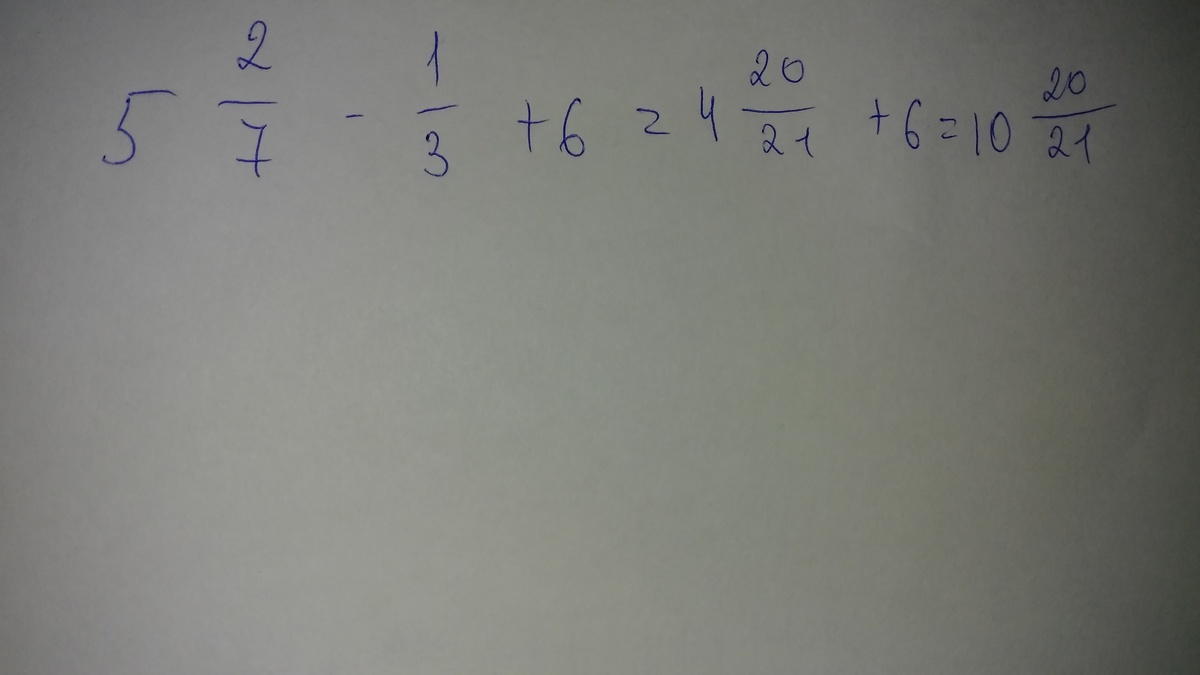 5 2/7 - 1/3 + 6 = 4 20/21 + 6 = 10 20/21